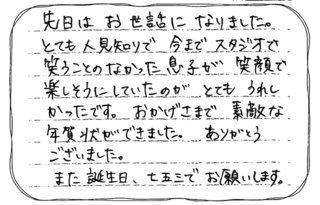 先日は お世話に なりました。
とても 人見知りで 今まで スタジオで
笑うことのなかった 息子が 笑顔で
楽しそうにしていたのが とても うれし
かったです。 おかげさまで 素敵な
年賀状ができました。 ありがとう
ございました。
また 誕生日、七五三で お願いします。